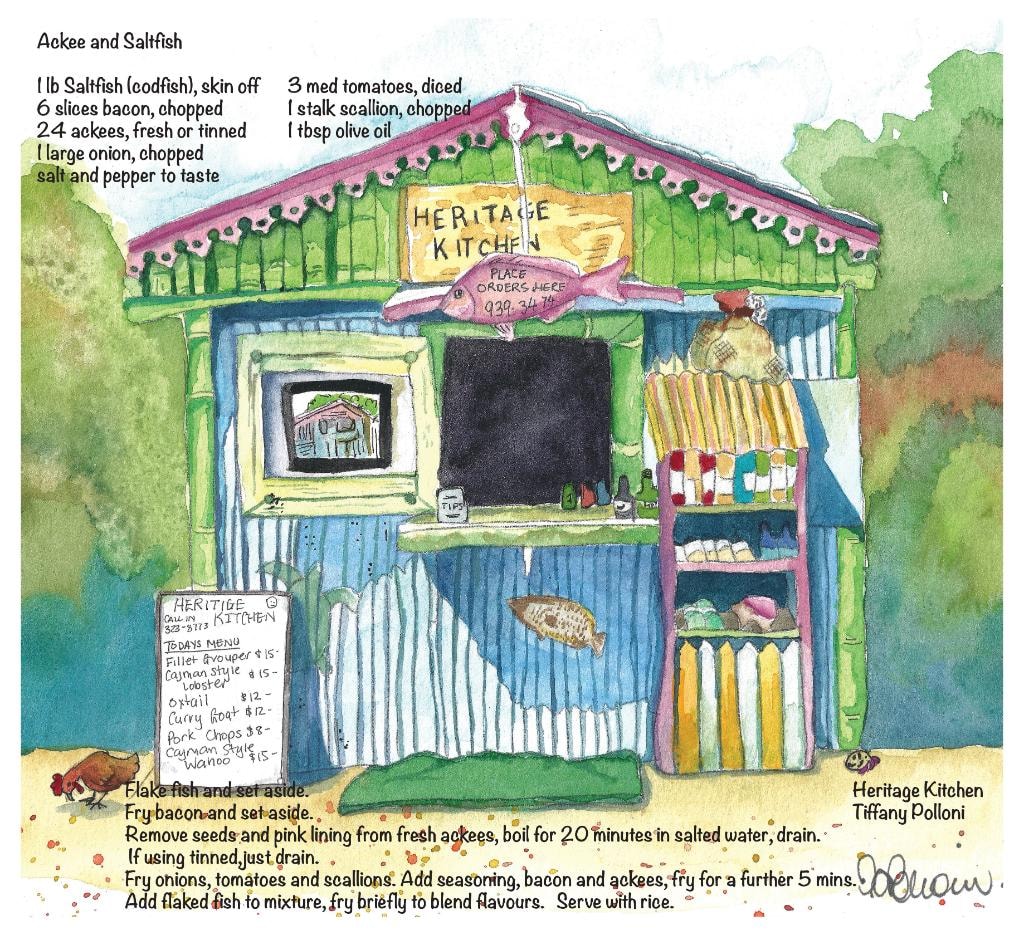 Ackee and Saltfish
1 lb Saltfish (codfish), skin off
6 slices bacon, chopped
24 ackees, fresh or tinned
1 large onion, chopped
salt and pepper to taste
3 med tomatoes, diced
1 stalk scallion, chopped
1 tbsp olive oil
HERITAGE
KITCHEN
PLACE
ORDERS HERE
939.3474
TIPS
HERITIGE
CALL IN KITCHEN
323-8773
TODAYS MENU
Fillet Grouper $15-
Cayman Style $15-
Lobster
Oxtail $12-
Curry Goat $12-
Pork Chops $8-
Cayman Style $15-
Wahoo
Flake fish and set aside.
Fry bacon and set aside.
Remove seeds and pink lining from fresh ackees, boil for 20 minutes in salted water, drain.
If using tinned,just drain.
Fry onions, tomatoes and scallions. Add seasoning, bacon and ackees, fry for a further 5 mins.
Add flaked fish to mixture, fry briefly to blend flavours. Serve with rice.
Heritage Kitchen
Tiffany Polloni